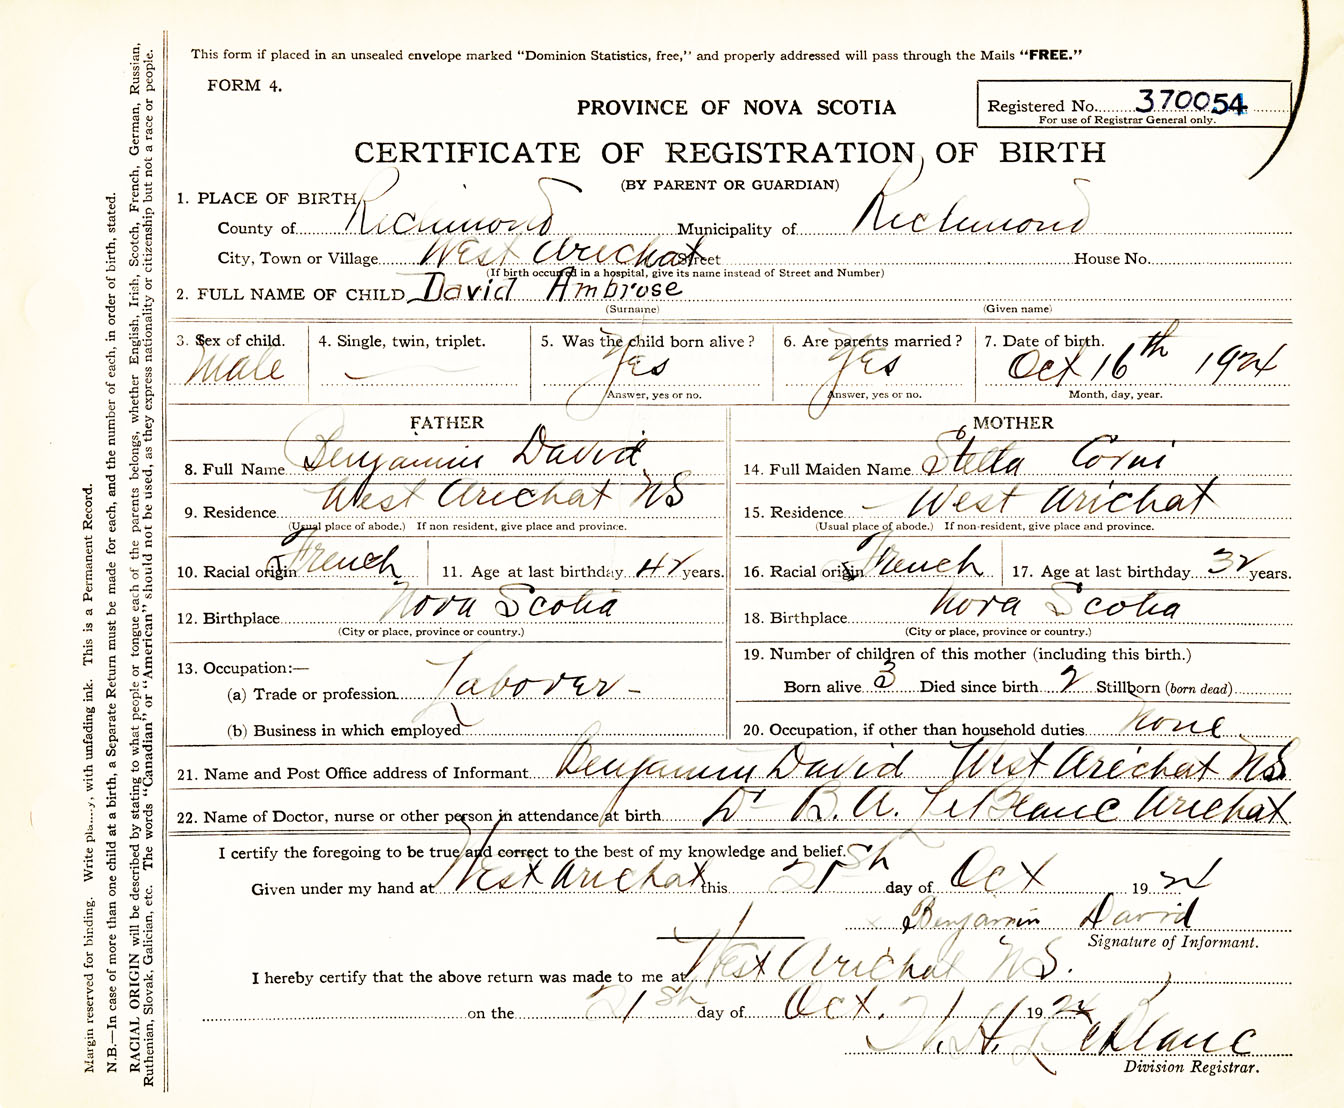 This form if placed in an unsealed envelope marked "Dominion Statistics, free," and properly addressed will pass through the Mails "FREE."
FORM 4.
Registered No. 370054
For use of Registrar General only.
PROVINCE OF NOVA SCOTIA
CERTIFICATE OF REGISTRATION OF BIRTH
(BY PARENT OR GUARDIAN)
1. PLACE OF BIRTH
County of Richmond Municipality of Richmond
City, Town or Village West Arichat Street House No.
(If birth occurred in a hospital, give its name instead of Street and Number)
2. FULL NAME OF CHILD David Ambrose
(Surname) (Given name)
3. Sex of child. 4. Single, twin, triplet. 5. Was the child born alive? 6. Are parents married? 7. Date of birth.
Male Yes Yes Oct 16th 1924
Answer, yes or no. Answer, yes or no. Month, day, year.
FATHER MOTHER
8. Full Name Benjamin David 14. Full Maiden Name Stella
9. Residence West Arichat NS 15. Residence West Arichat
(Usual place of abode.) If non resident, give place and province. (Usual place of abode.) If non-resident, give place and province.
10. Racial origin French 11. Age at last birthday 42 years. 16. Racial origin French 17. Age at last birthday 32 years.
12. Birthplace Nova Scotia 18. Birthplace Nova Scotia
(City or place, province or country.) (City or place, province or country.)
13. Occupation:— 19. Number of children of this mother (including this birth.)
(a) Trade or profession Laborer - Born alive 3 Died since birth 2 Stillborn (born dead)
(b) Business in which employed 20. Occupation, if other than household duties None
21. Name and Post Office address of Informant Benjamin David West Arichat NS
22. Name of Doctor, nurse or other person in attendance at birth Dr B. A. LeBlanc Arichat
I certify the foregoing to be true and correct to the best of my knowledge and belief.
Given under my hand at West Arichat this 21sh day of Oct 1924
Benjamin David
Signature of Informant.
I hereby certify that the above return was made to me at West Arichat N S.
on the 21sh day of Oct. 21 1924
LeBlanc
Division Registrar.
Margin reserved for binding. Write with unfading ink. This is a Permanent Record.
N.B.—In case of more than one child at a birth, a Separate Return must be made for each, and the number of each, in order of birth, stated.
RACIAL ORIGIN will be described by stating to what people or tongue each of the parents belongs, whether English, Irish, Scotch, French, German, Russian,
Ruthenian, Slovak, Galician, etc. The words "Canadian" or "American" should not be used, as they express nationality or citizenship but not a race or people.